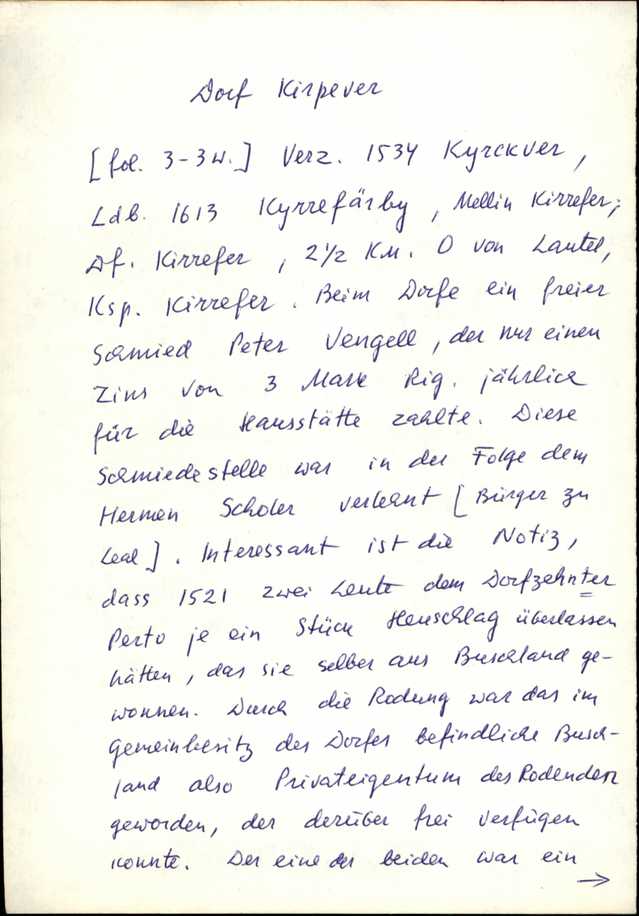 Dorf Kirpever
[fol. 3-3w.] Verz. 1534 Kyrckver,
Ldb. 1613 Kyrrefärby, Mellin Kirrefer;
Df. Kirrefer, 2½ Km. O von Lautel,
Ksp. Kirrefer. Beim Dorfe ein freier
Schmied Peter Vengell, der nur einen
Zins von 3 Mark Rig. jährlich
für die Hausstätte zahlte. Diese
Schmiedestelle war in der Folge dem
Hermen Scholer verleant [Bürger zu
Leal]. Interessant ist die Notiz,
dass 1521 zwei Leute dem Dorfzehnter
Perto je ein Stück Heuschlag überlassen
hätten, das sie selber aus Buschland ge-
wonnen. Durch die Rodung war das im
Gemeinbesitz des Dorfes befindliche Busch-
land also Privateigentum des Rodenden
geworden, der derüber frei verfügen
konnte. Der eine der beiden war ein
→